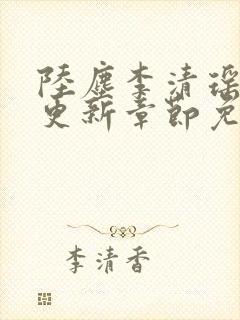 陸塵李清瑶
更新章節免
李清香